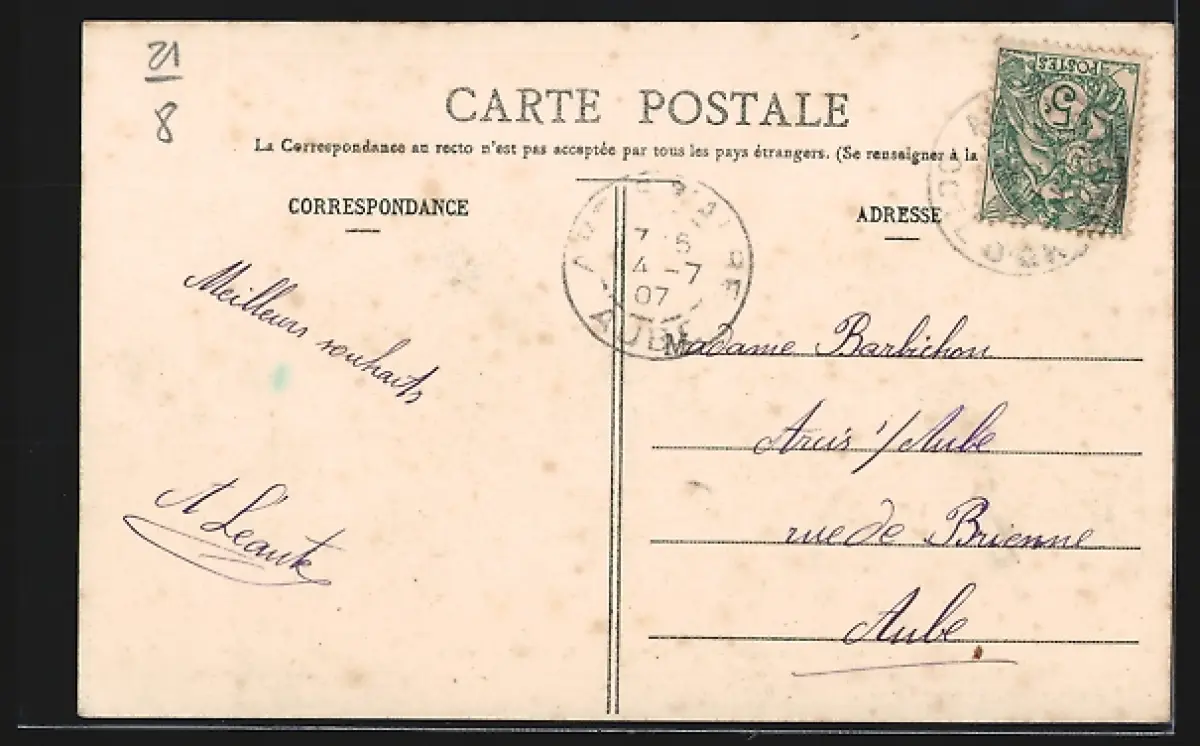 21
8
POSTES
5c
CARTE POSTALE
La Correspondance au recto n'est pas acceptée par tous les pays étrangers. (Se renseigner à la
CORRESPONDANCE
ADRESSE
7
4-7
07
AUBE
Meilleurs souhaits
A Léauté
Madame Barbichon
Arcis s/Aube
rue de Brienne
Aube